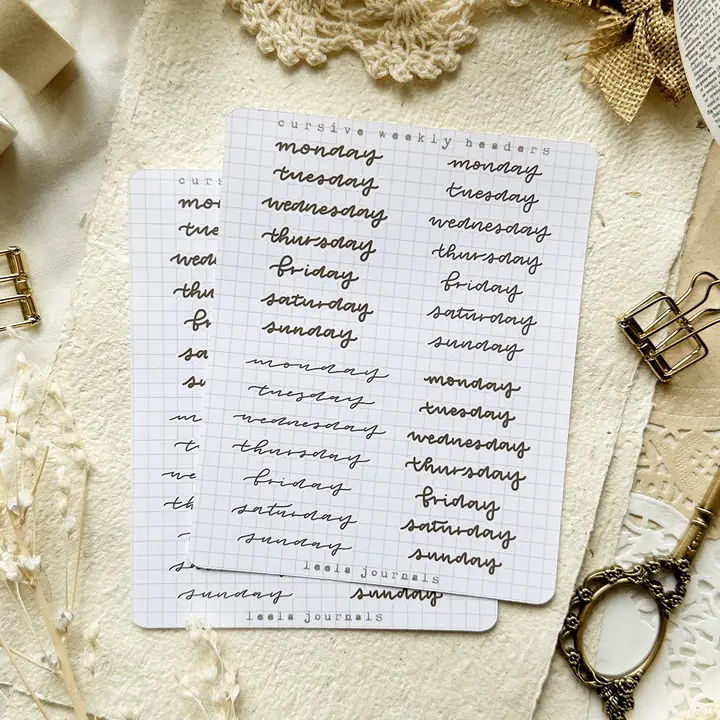 cursive weekly headers
monday
tuesday
wednesday
thursday
friday
saturday
sunday
monday
tuesday
wednesday
thursday
friday
saturday
sunday
monday
tuesday
wednesday
thursday
friday
saturday
sunday
monday
tuesday
wednesday
thursday
friday
saturday
sunday
leela journals
curs
mo
tue
wed
thu
fr
sa
su
m
t
we
th
s
sunday
sunday
leela journals